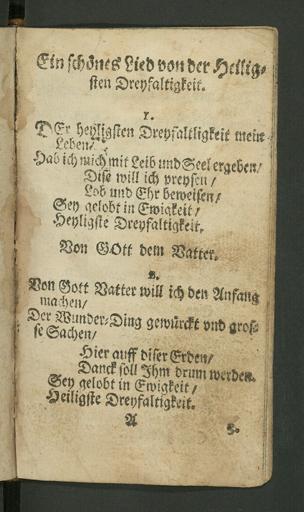 Ein schönes Lied von der Heilig-
sten Dreyfaltigkeit.
1.
DEr heyligsten Dreyfaltligkeit mein
Leben/
Hab ich mich mit Leib und Seel ergeben/
Dise will ich preysen/
Lob und Ehr beweisen/
Sey gelobt in Ewigkeit/
Heyligste Dreyfaltigkeit.
Von GOtt dem Vatter.
2.
Von Gott Vatter will ich den Anfang
machen/
Der Wunder-Ding gewürckt vnd gros-
se Sachen/
Hier auff diser Erden/
Danck soll Ihm drum werden.
Sey gelobt in Ewigkeit/
Heiligste Dreyfaltigkeit.
A 3.